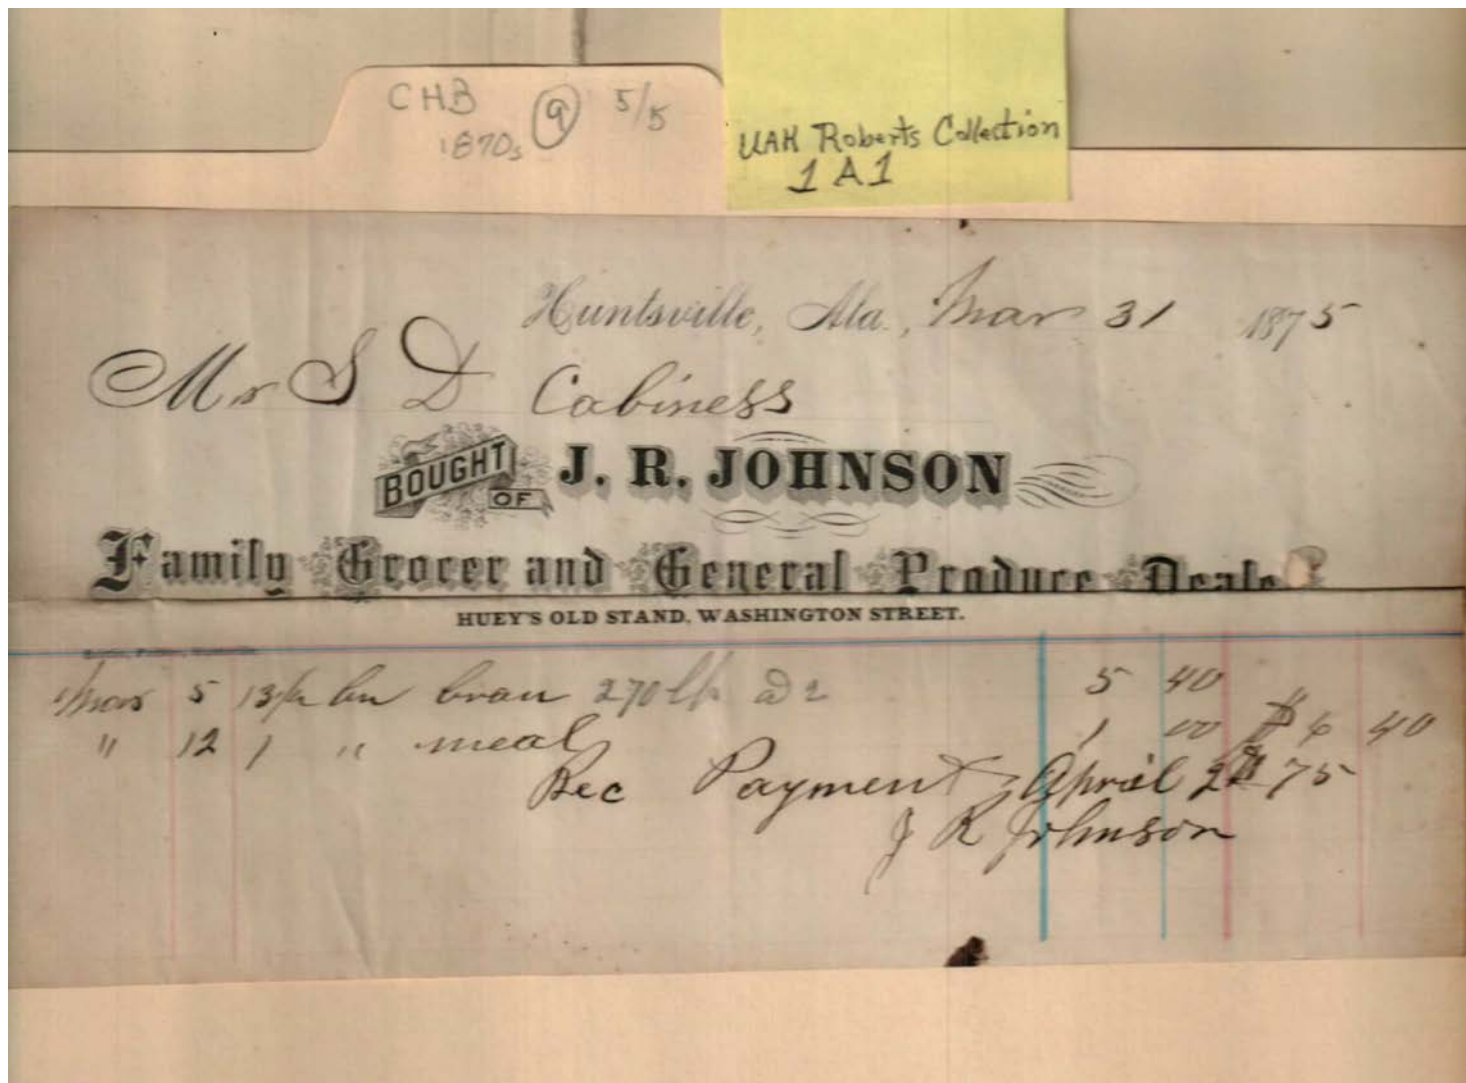 CHB 9 5/5
1870s
UAH Roberts Collection
1A1
Huntsville, Ala., Mar 31 1875
Mr S D Cabiness
BOUGHT OF J. R. JOHNSON
Family Grocer and General Produce Deale
HUEY'S OLD STAND, WASHINGTON STREET.
Mar 5 13½ bu bran 270 lbs @ 2 5 40
" 12 1 " meal 1 00 $6 40
Rec Payment April 2nd 75
J R Johnson